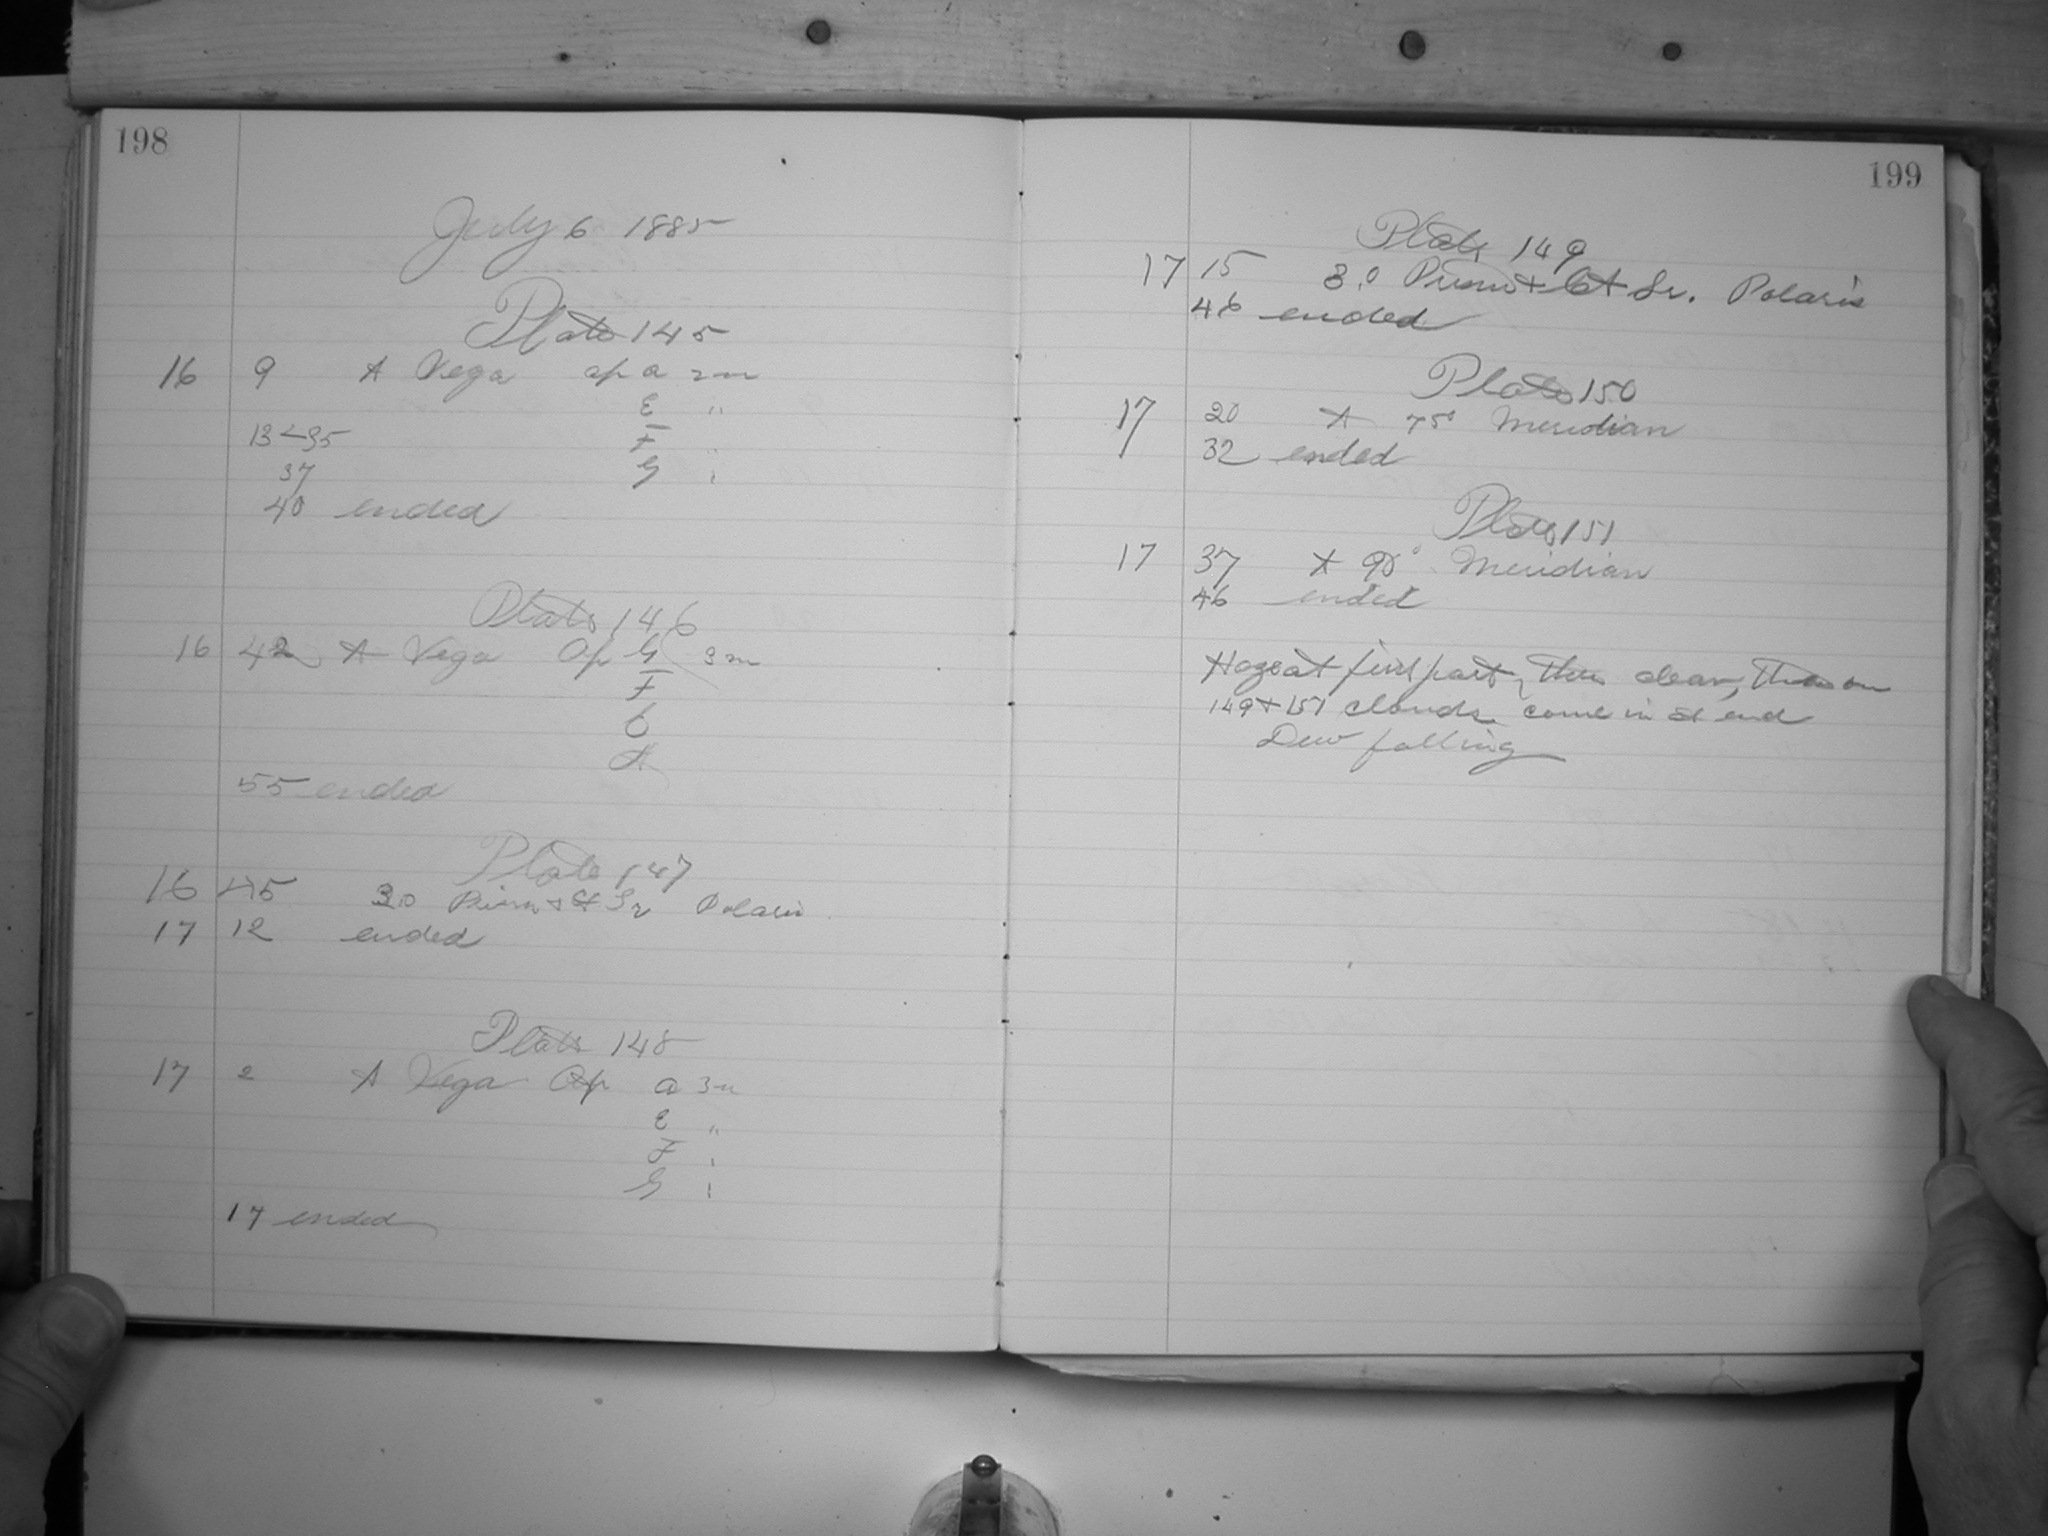 198
July 6 1885
Plate 145
16 9 A Vega ap a 2m
E "
13 35 F "
37 G "
40 ended
Plate 146
16 42 A Vega Ap G 3m
F
E
A
55 ended
Plate 147
16 45 3.0 Prism + Polaris
17 12 ended
Plate 148
17 2 A Vega Ap a 3m
E "
F "
G "
17 ended
199
Plate 149
17 15 3.0 Prism + Polaris
46 ended
Plate 150
17 20 A 75° Meridian
32 ended
Plate 151
17 37 A 90° Meridian
46 ended
Haze at first part, then clear, then on
149 + 151 clouds come in at end
Dew falling